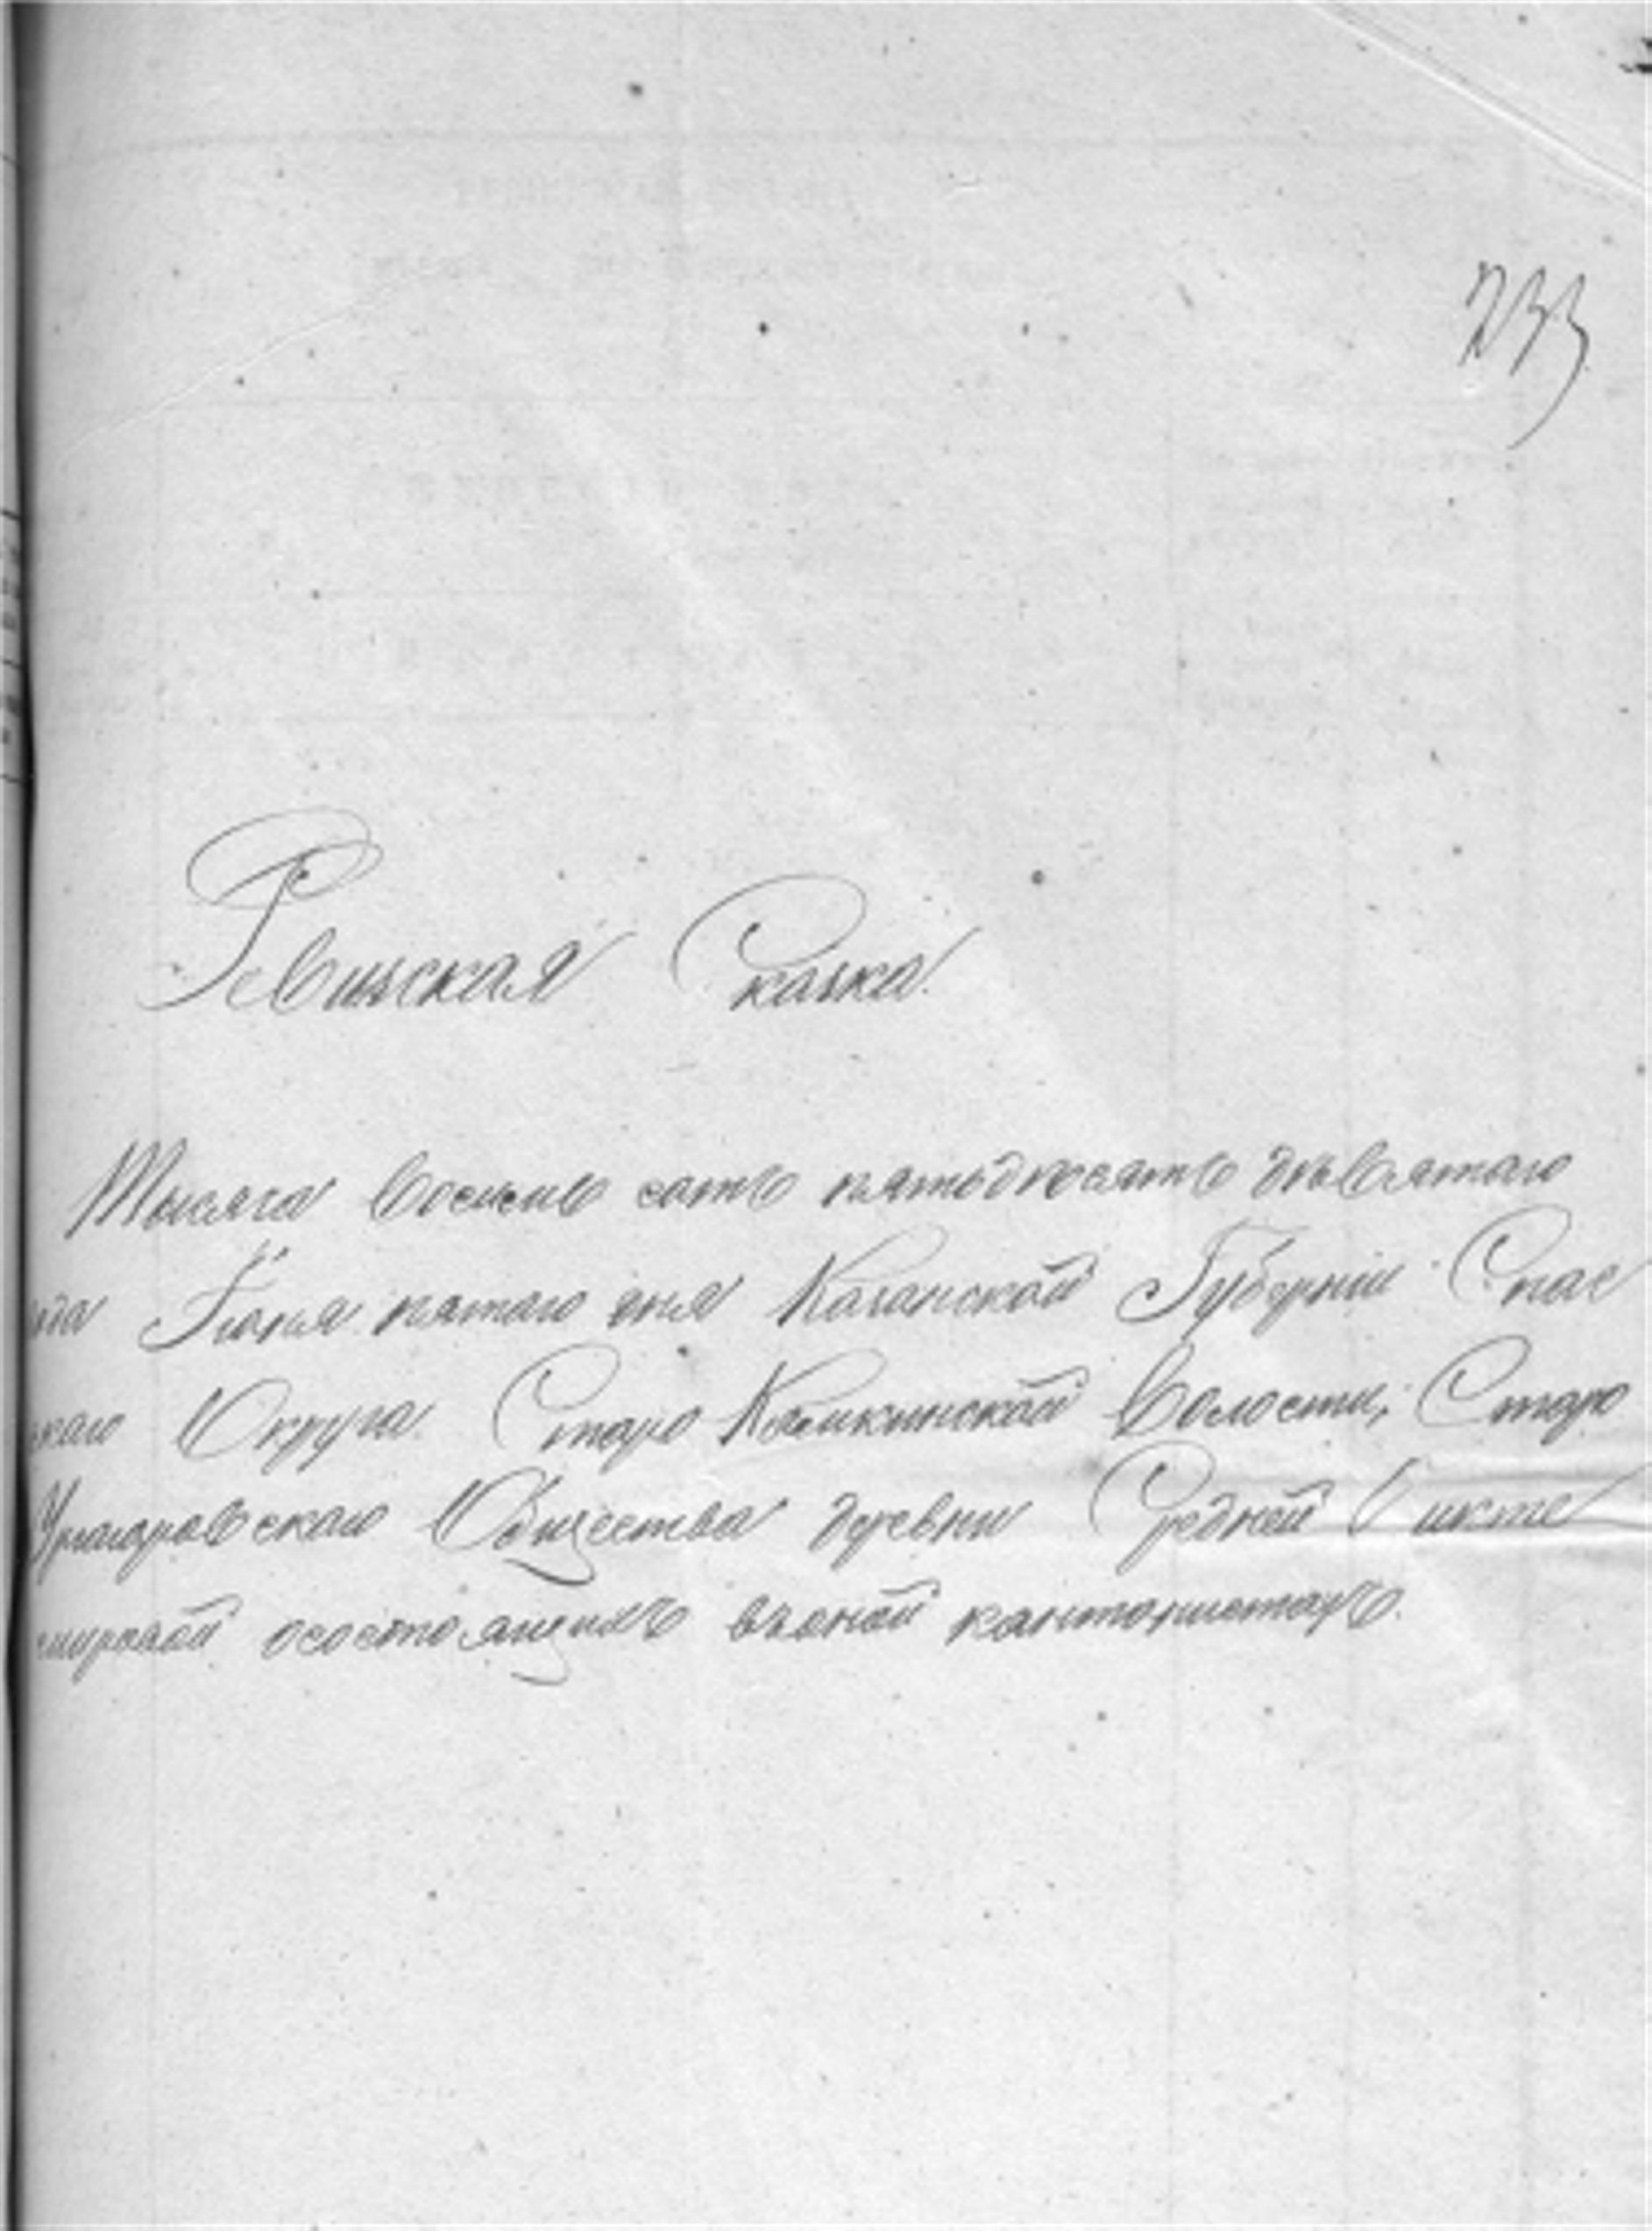 233
Ревизская Сказка.
Тысяча восемь сотъ пятьдесятъ девятаго
года Іюня пятаго дня Казанской Губерніи Спас
скаго Округа Старо Камкинской Волости, Старо
Урматровскаго Общества деревни Средней Бикте
мировой осостоящихъ въоной кантонистахъ.